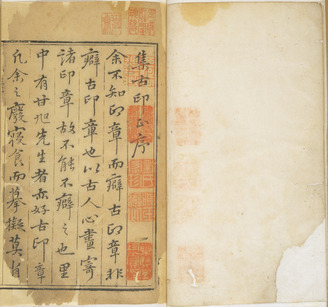 集古印正序
余不知印章而癖古印章非
癖古印章也以古人心畫寄
諸印章故不能不癖之也里
中有甘旭先生者亦好古印章
凡余之廢寢食而摹擬莫